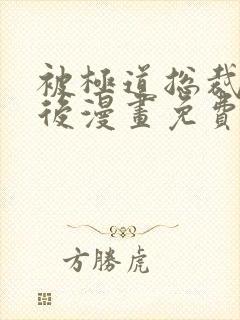 被極道总裁
後漫畫免費
方勝虎